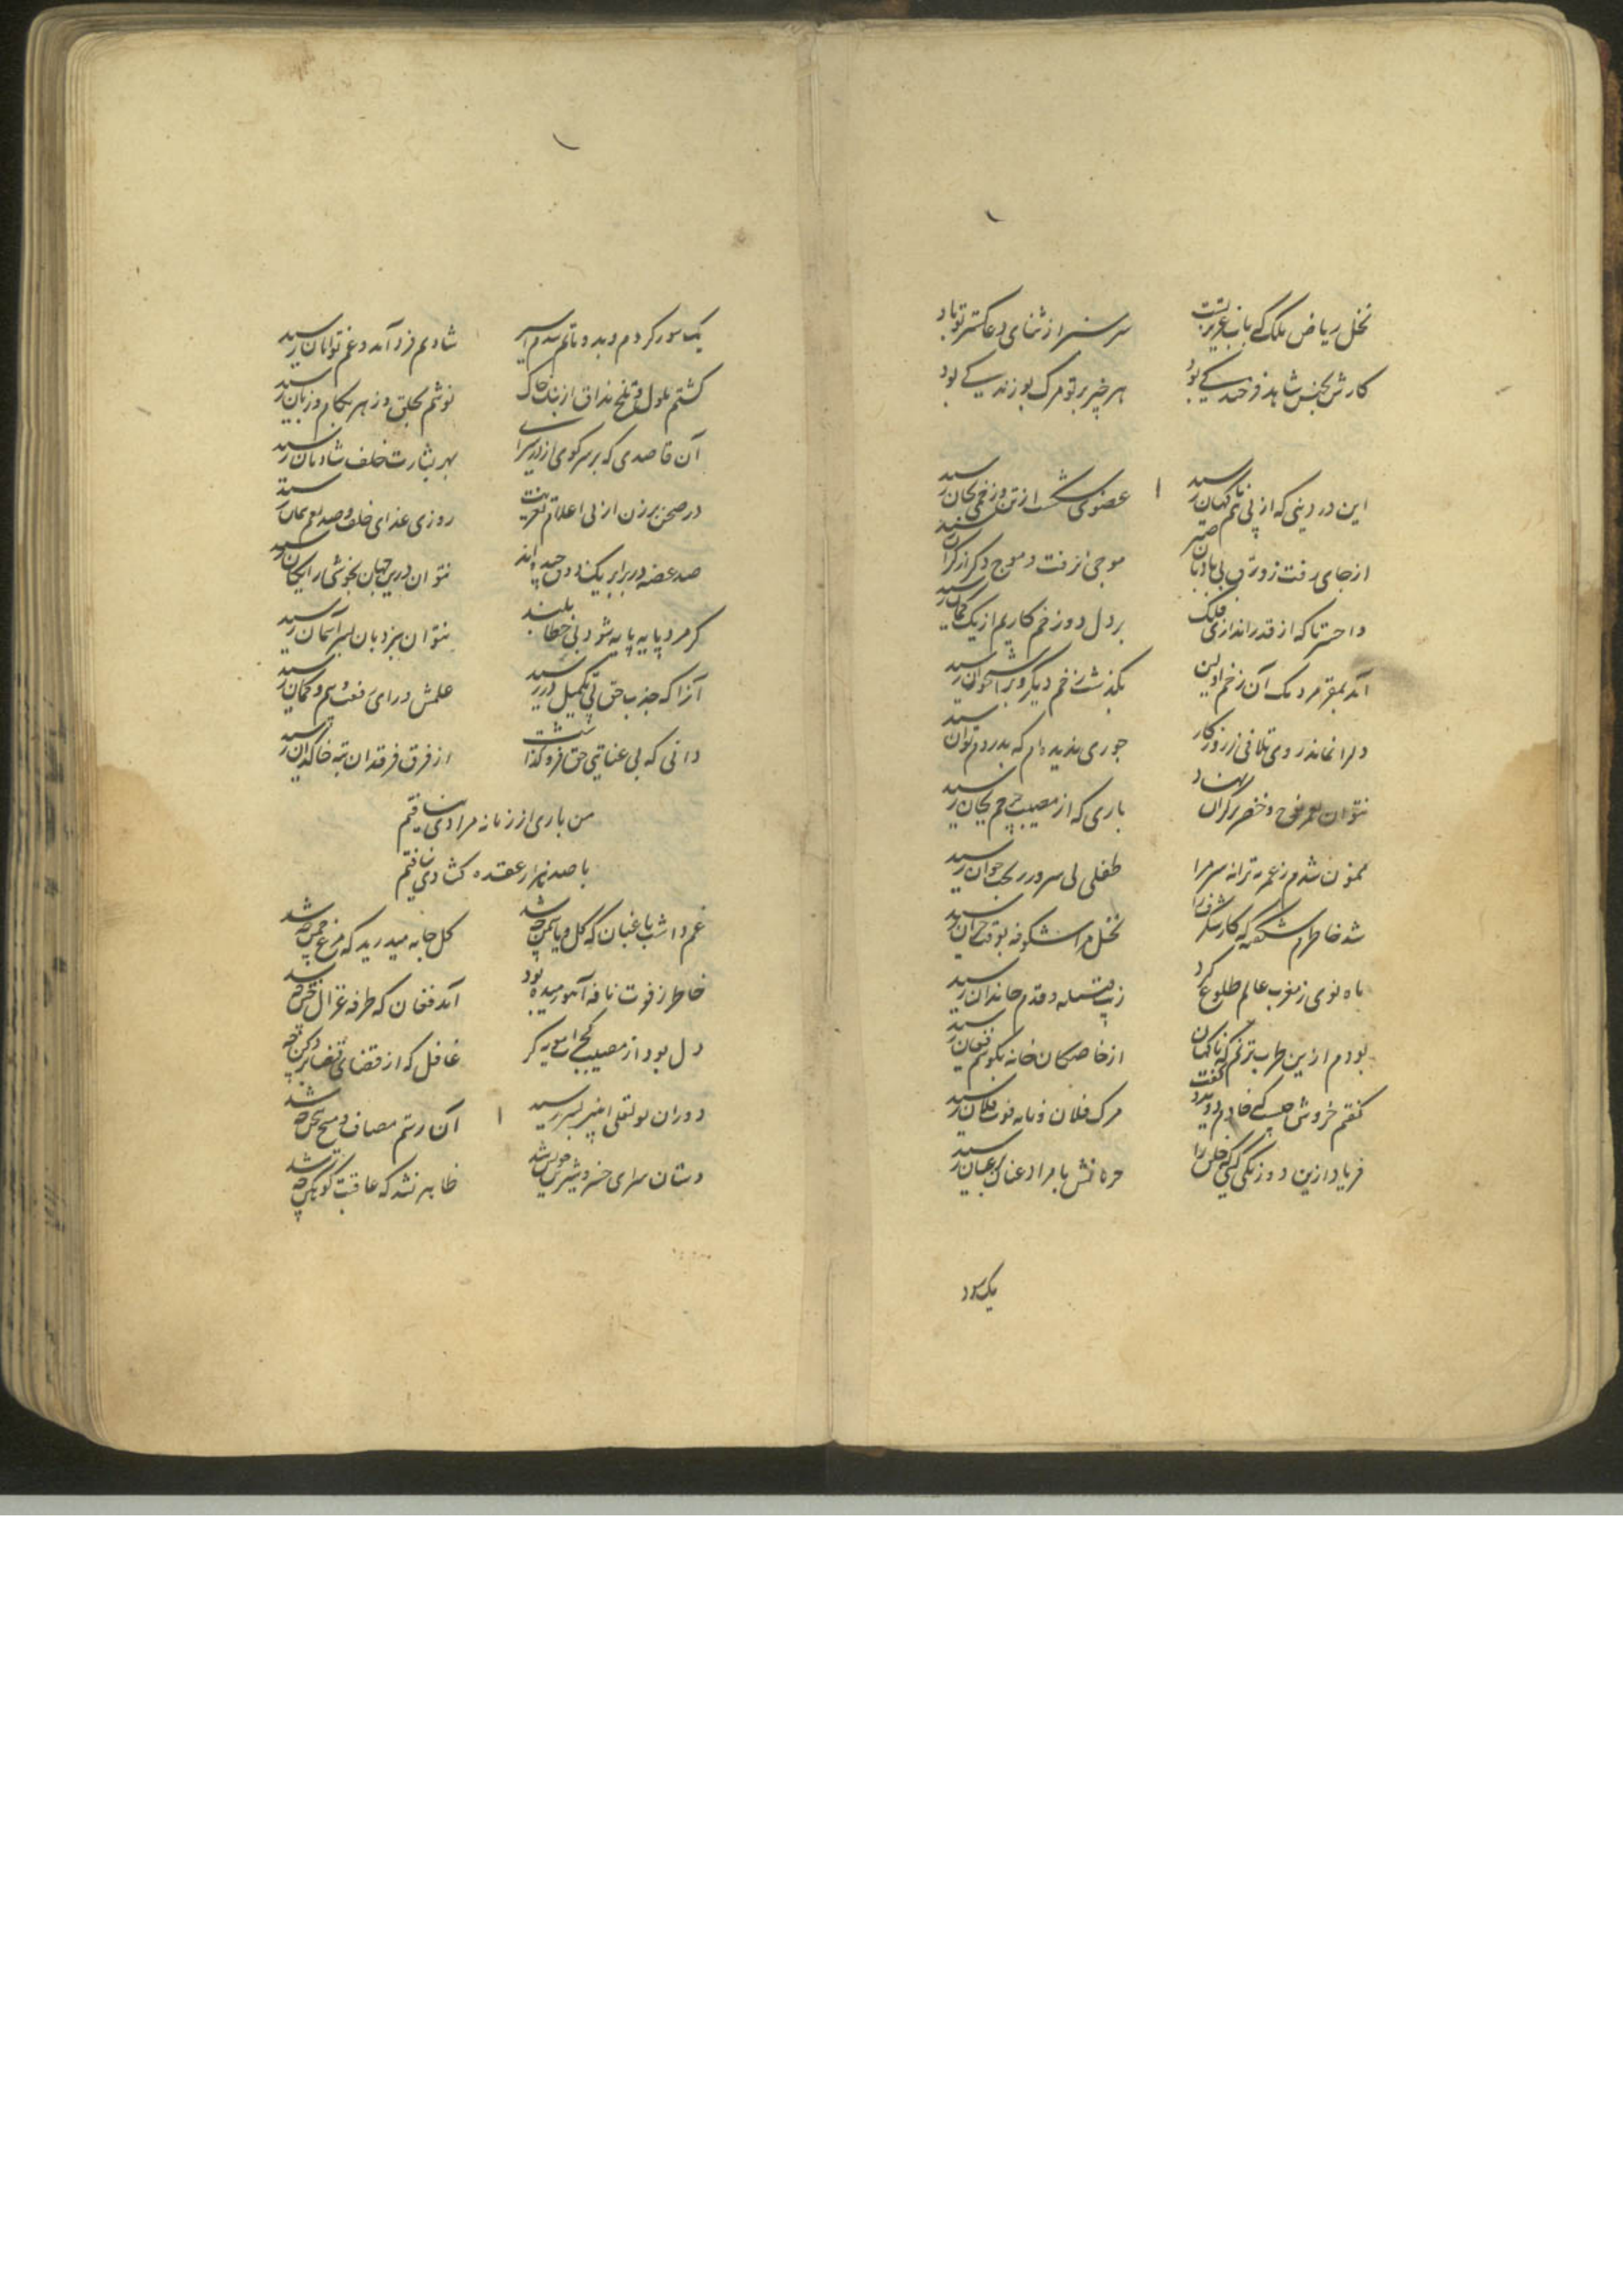 نخل ریاض ملک که باب عزیز تست
سرسبز از ثنای دعا گستر تو باد
کارش بجنس شاهد فرخند کی بود
هر خیر بر تو مرک بود زندکی بود
این درد بینی که از پی هم ناکهان رسید
عضوی شکست از تن و زخمی بجان رسید
از جای رفت زورق بی بادبان صبر
موجی نرفت و موج دکر از کران رسید
واحسرتا که از قدر اندازی فلک
بر دل دو زخم کاریم از یک کمان رسید
آمد بمغز مرد مک آن زخم اولین
بگذشت زخم دیگر و بر استخوان رسید
دلرا نماند روی تلافی ز روزکار
جوری ندیده‌ام که بدردم توان رسید
نتوان بعمر نوح و خضر بر کران نهاد
باری که از مصیبت هم بجان رسید
ممنون شدم ز عمر ترانه سرمرا
طفلی بی سرور بجوان رسید
شد خاطرم شکفته که کار شکرف را
نخل مرا شکوفه بوقت خزان رسید
ماه نوی ز مغرب عالم طلوع کرد
زیب قبیله و قدم خاندان رسید
بودم ازین طرب بترنم که ناکهان
از خاصکان خانه بکوشم فغان رسید
کفتم خروش چیست که خادم دوید و کفت
مرک فلان و نامه فوت فلان رسید
فریاد ازین دورنکی کیتی که خلق را
حرمانش با مراد عنان بر عنان رسید
یک سور
یک سور کردم و بدو ماتم شدم اسیر
شادیم فرد آمد و غم توامان رسید
کشتم ملول و تلخ مذاق از بنات خاک
نوشم بحلق و زهر بکام و زبان رسید
آن قاصدی که بر سر کوی از در سرای
بهر بشارت خلف شادمان رسید
در صحن برزن از پی اعلام تعزیت
روزی عذای خلف و صد هم عنان رسید
صد عضه در برابر یک ذوق چیده‌اند
نتوان درین جهان بخوشی رایکان رسید
کر مرد پایه پایه شود بی خطا بلند
نتوان بنردبان بسر آسمان رسید
آنرا که جذب حق پی تکمیل در رسید
علمش ورای رفعت وهم و کمان رسید
دانی که بی عنایتی حق فرو کذاشت
از فرق فرقدان بته خاکدان رسید
من باری از زمانه مرادی نیافتم
با صد هزار عقده کشادی نیافتم
غم داشت باغبان که کل و یاسمن چه شد
کل جامه میدرید که مرغ چمن چه شد
خاطر ز فوت نافه آهو رمیده بود
آمد فغان که طرفه غزال ختن چه شد
دل بود از مصیبت کجرات مویه کر
غافل که از قضای قضا بر دکن چه شد
دوران بو لعلی اخیر بسر رسید
آن رستم مصاف و مسیح سخن چه شد
دستان سرای خسرو شیرین خموش شد
ظاهر نشد که عاقبت کوهکن چه شد